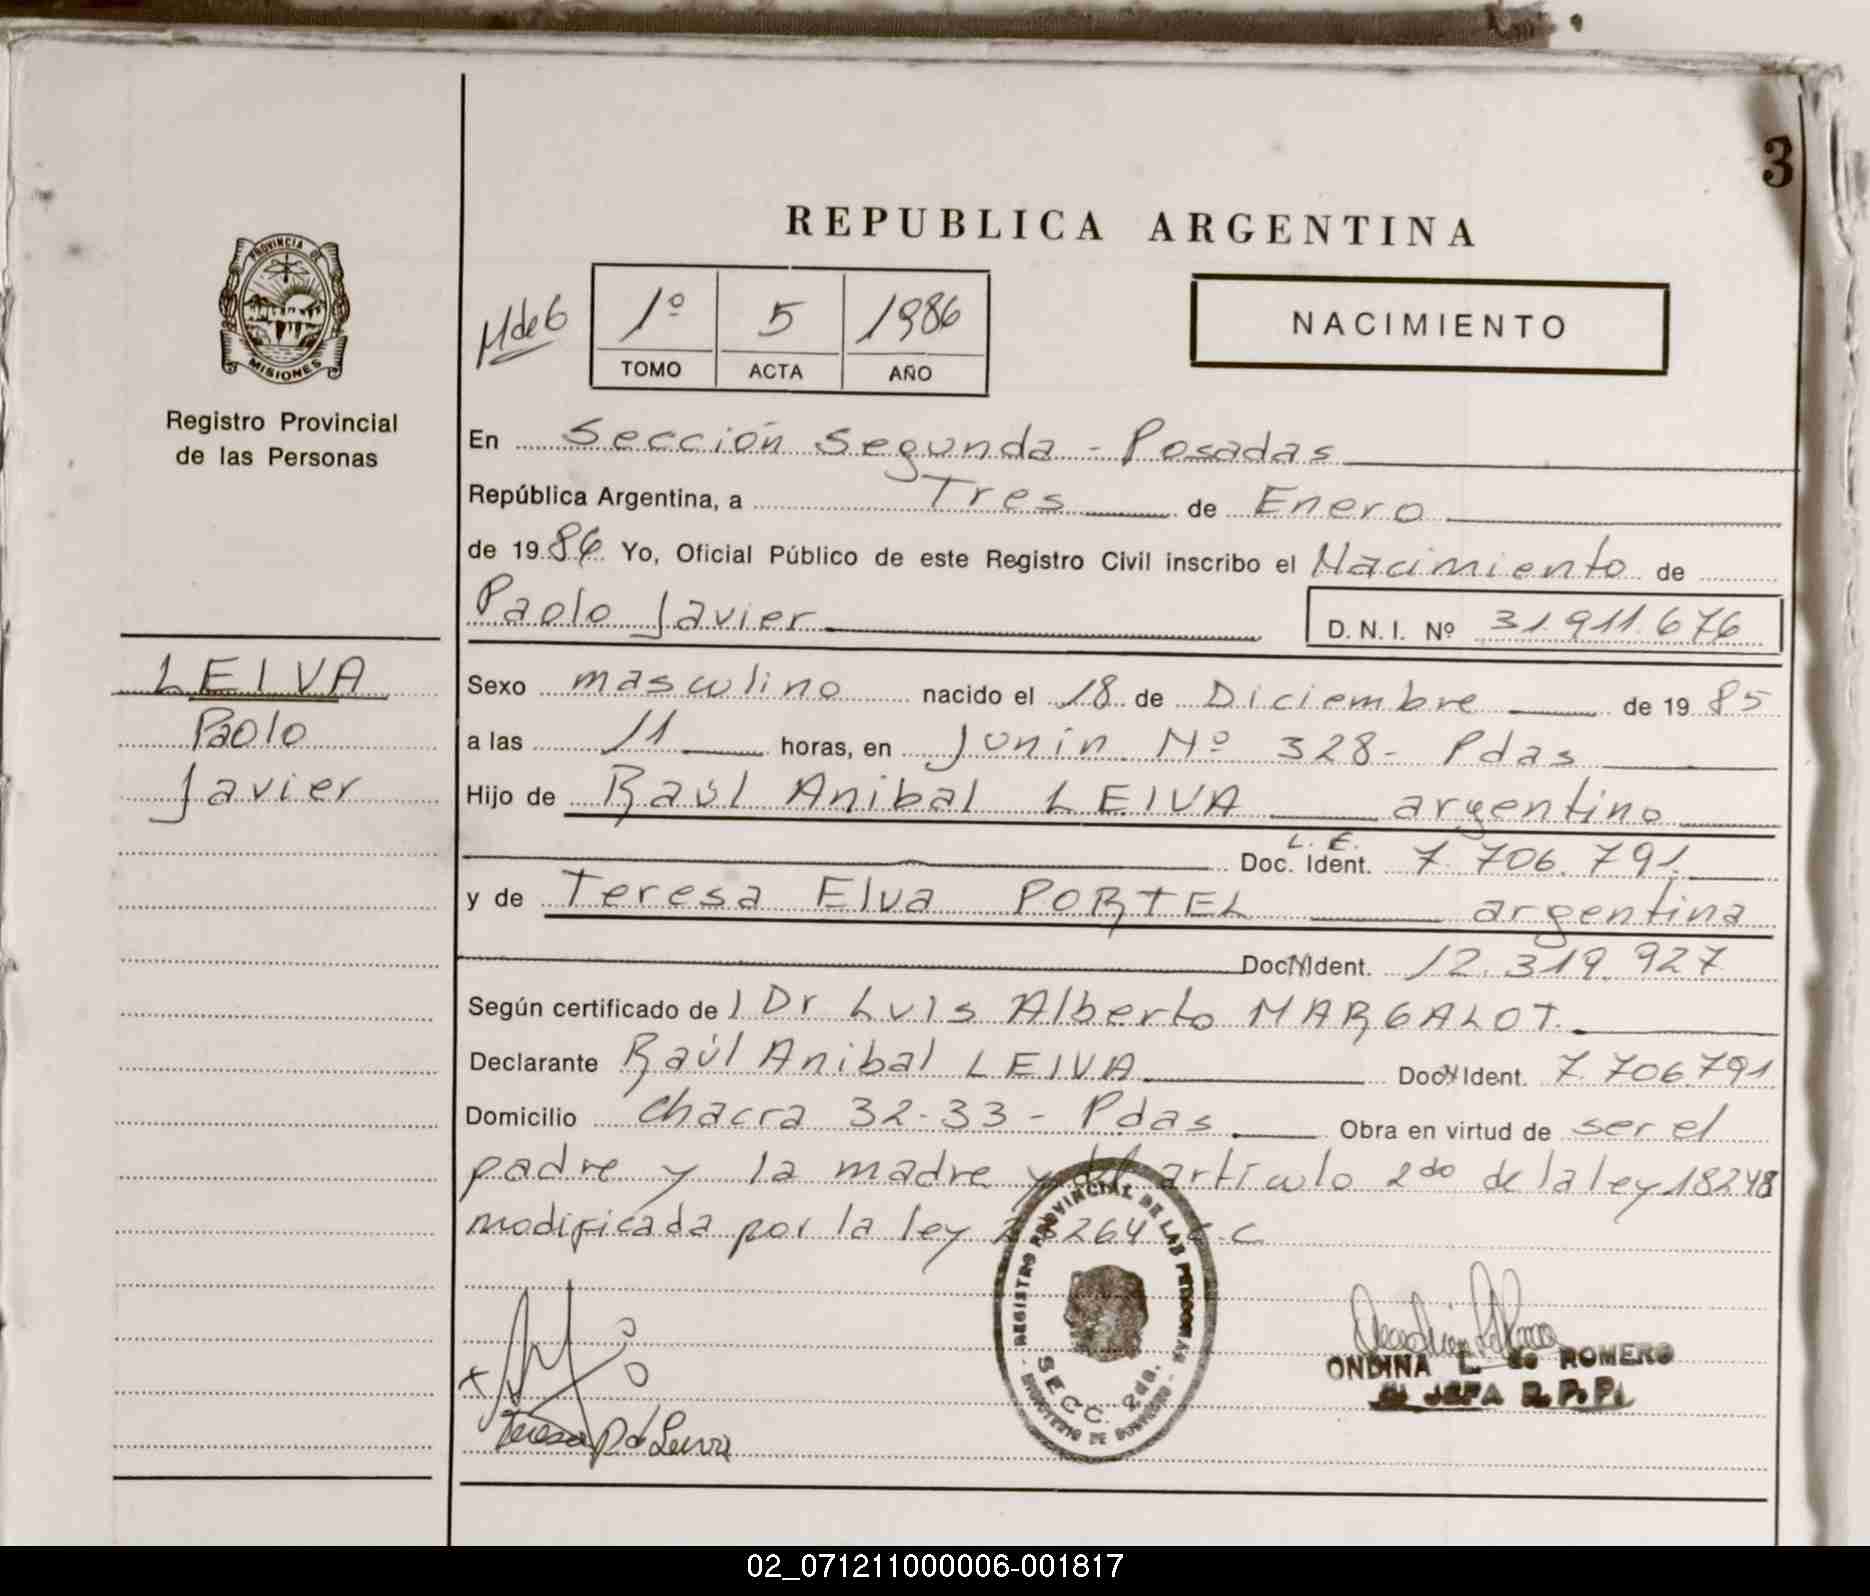 3
REPUBLICA ARGENTINA
PROVINCIA DE
MISIONES
Registro Provincial
de las Personas
M de 6
1º 5 1986
TOMO ACTA AÑO
NACIMIENTO
En Sección Segunda - Posadas
República Argentina, a Tres de Enero
de 1986 Yo, Oficial Público de este Registro Civil inscribo el Nacimiento de
Paolo Javier D.N.I. Nº 31.911.676
LEIVA
Paolo
Javier
Sexo masculino nacido el 18 de Diciembre de 1985
a las 11 horas, en Junín Nº 328- Pdas
Hijo de Raúl Anibal LEIVA argentino
L. E.
Doc. Ident. 7.706.791.
y de Teresa Elva PORTEL argentina
Doc. Ident. 12.319.927
Según certificado de l Dr Luis Alberto MARGALOT.
Declarante Raúl Anibal LEIVA Doc. Ident. 7.706.791
Domicilio Chacra 32-33 - Pdas Obra en virtud de ser el
padre y la madre y del artículo 2do de la ley 18248
modificada por la ley 23264
REGISTRO PROVINCIAL DE LAS PERSONAS
SECC. 2da.
MINISTERIO DE GOBIERNO
Teresa P de Leiva
ONDINA L. de ROMERO
JEFA R.P.P.
02_071211000006-001817